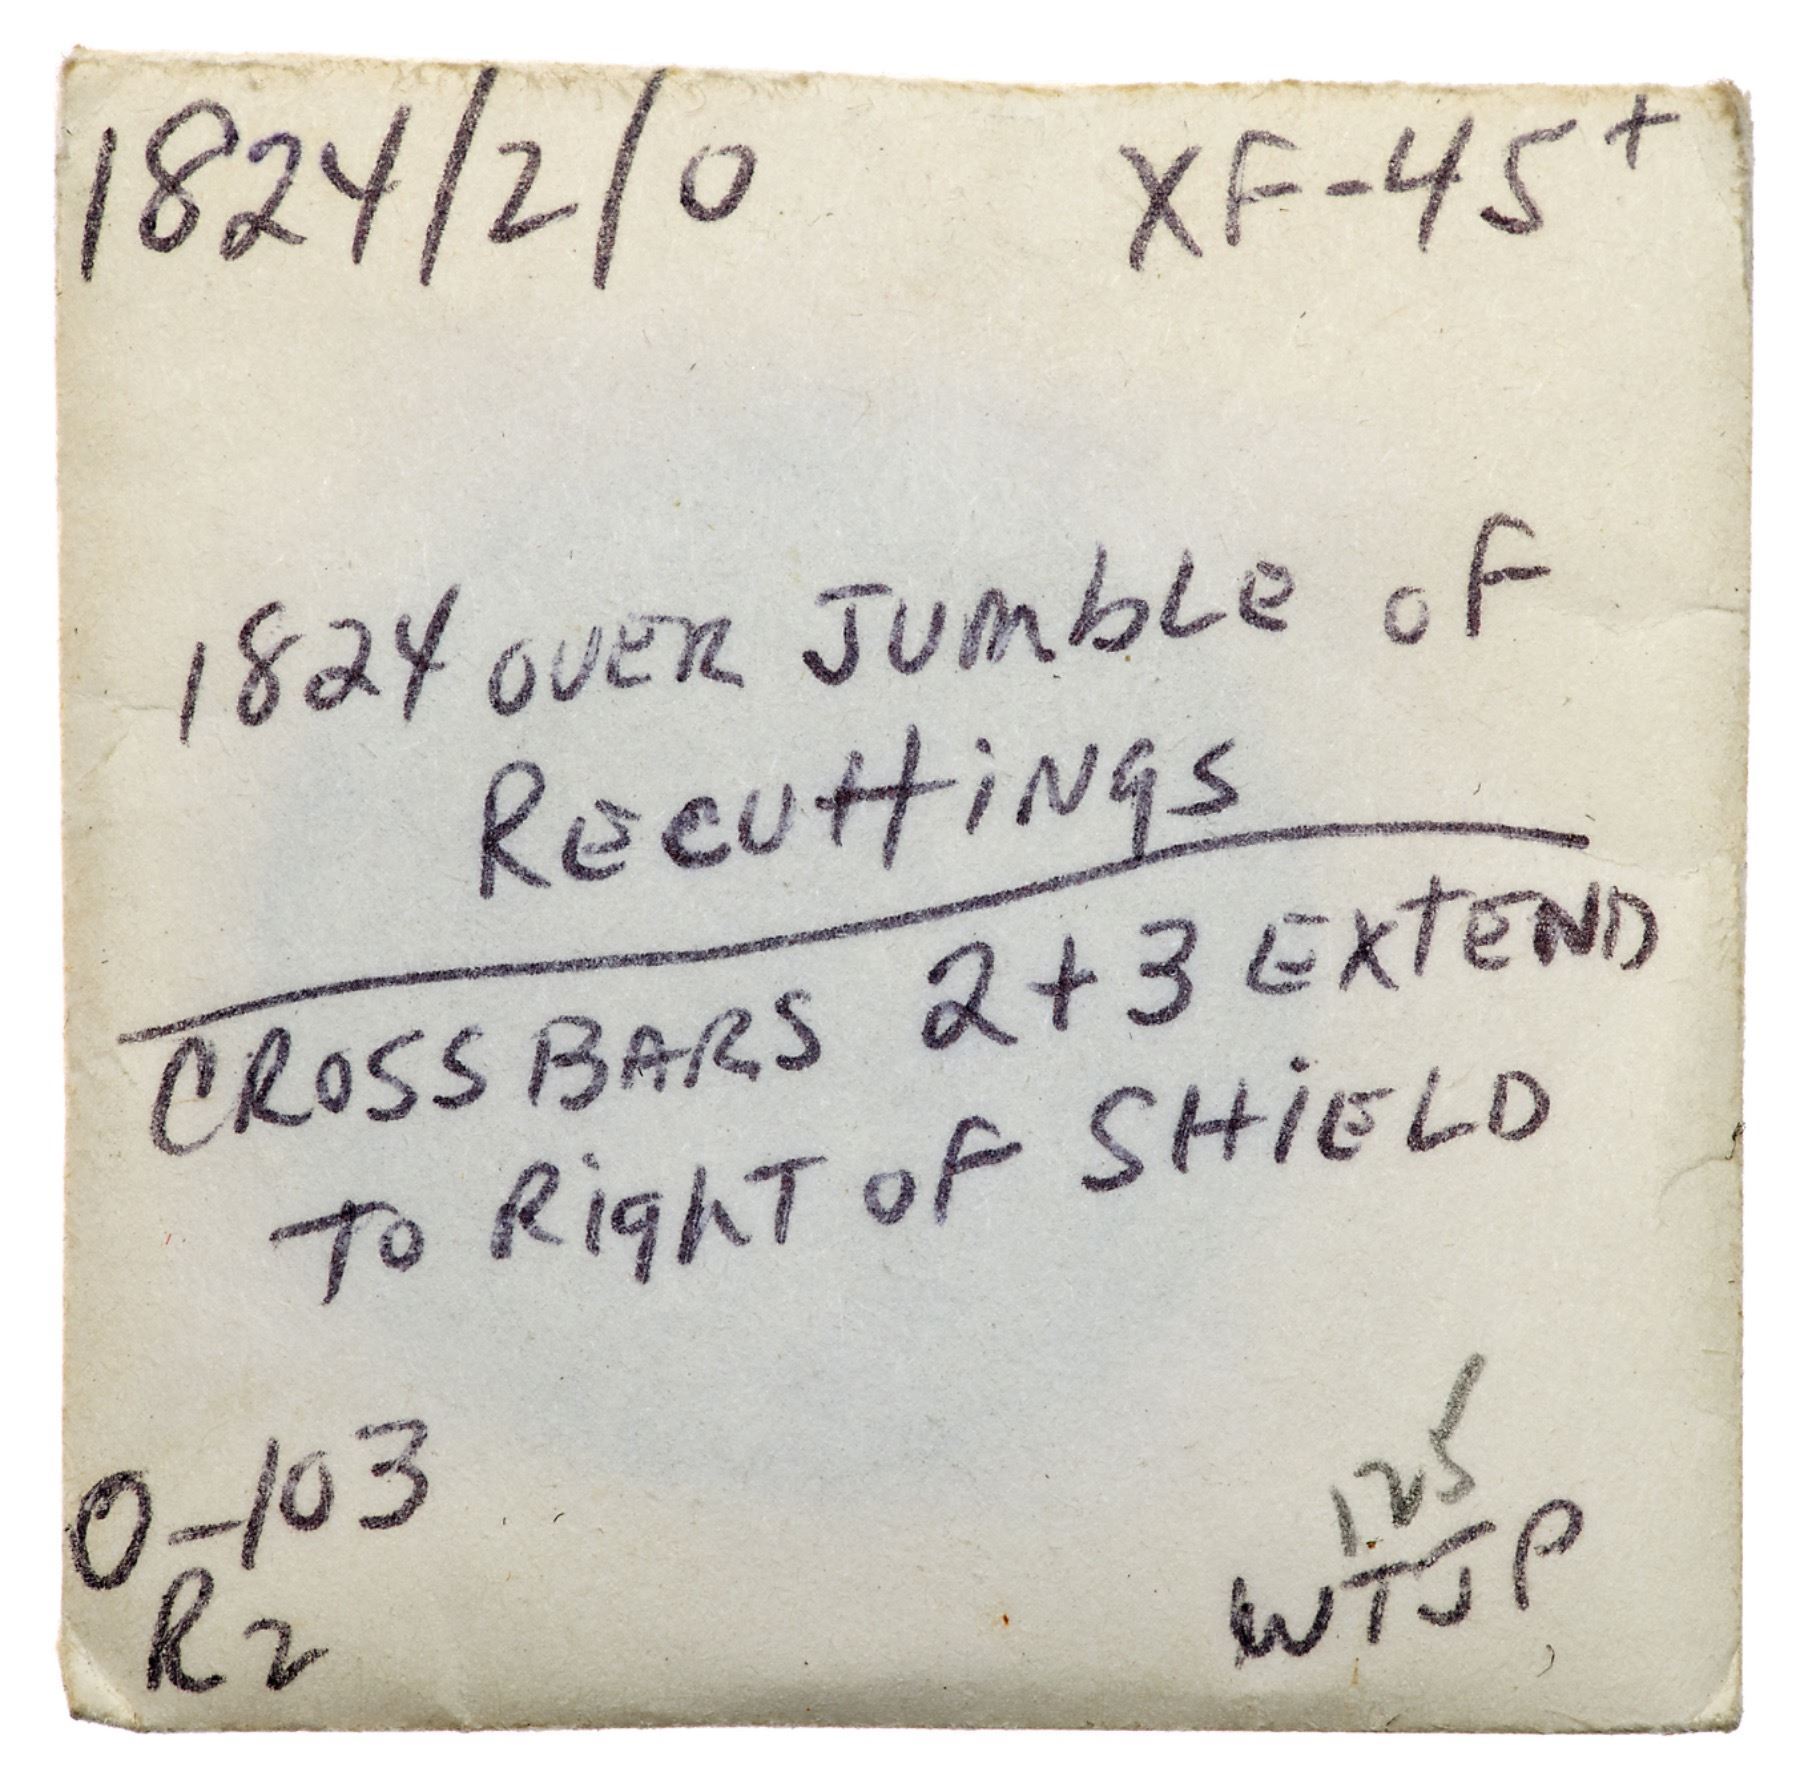 1824/2/0 XF-45+
1824 OVER JUMbLE OF
RECUttiNgS
CROSS BARS 2+3 EXTEND
TO RighT OF SHiELD
O-103
R2
125
WTJP